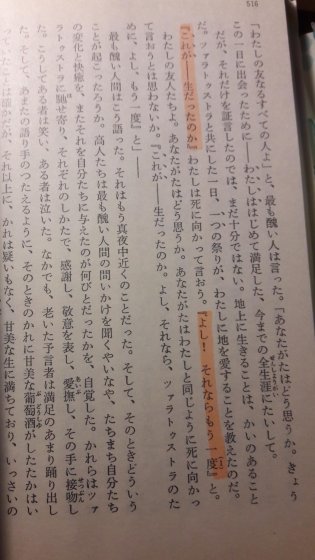 516
「わたしの友なるすべての人よ」と、最も醜い人は言った。「あなたがたはどう思うか。きょう
この一日に出会ったために――わたしははじめて満足した、今までの全生涯にたいして。
だが、それだけを証言したのでは、まだ十分ではない。地上に生きることは、かいのあること
だ。ツァラトゥストラと共にした一日、一つの祭りが、わたしに地を愛することを教えたのだ。
『これが――生だったのか』わたしは死に向かって言おう。『よし! それならもう一度』と。
わたしの友人たちよ。あなたがたはどう思うか。あなたがたはわたしと同じように死に向かっ
て言おうとは思わないか。『これが――生だったのか。よし、それなら、ツァラトゥストラのた
めに、よし、もう一度』と――
最も醜い人間はこう語った。それはもう真夜中近くのことだった。そして、そのときどういう
ことが起こったろうか。高人たちは最も醜い人間の問いかけを聞くやいなや、たちまち自分たち
の変化と快癒を、またそれを自分たちに与えたのが何びとだったかを、自覚した。かれらはツァ
ラトゥストラに馳せ寄り、それぞれのしかたで、感謝し、敬意を表し、愛撫し、その手に接吻し
た。こうしてある者は笑い、ある者は泣いた。なかでも、老いた予言者は満足のあまり踊り出し
た。そして、あまたの語り手のつたえるように、そのときのかれに甘美な葡萄酒がしたたかはい
っていたことは確かだが、それ以上に、かれは疑いもなく、甘美な生に満ちており、いっさいの